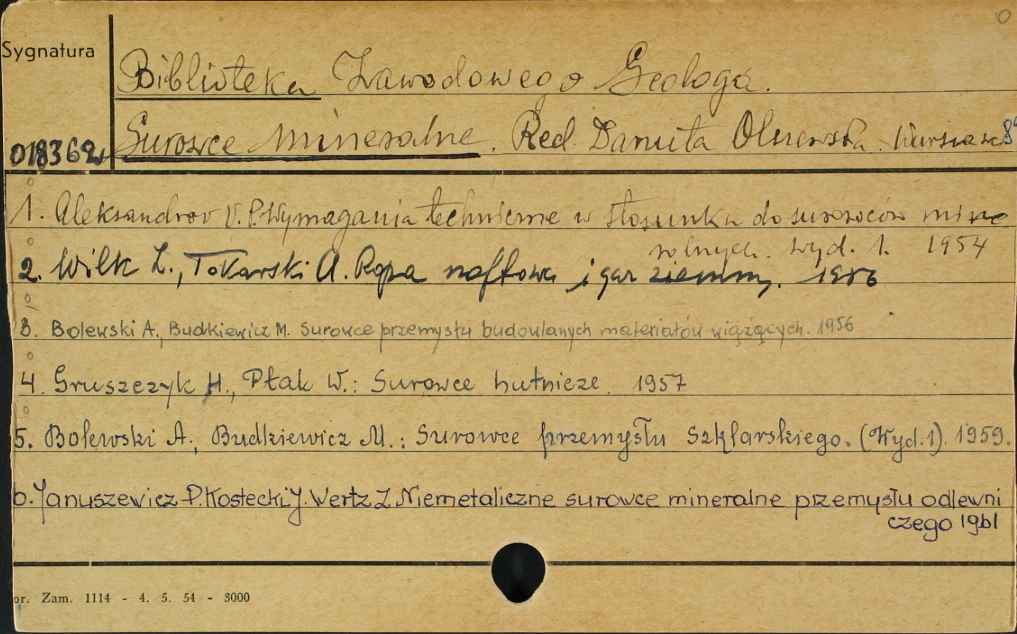 0
Sygnatura
Biblioteka Zawodowego Geologa.
018362 Surowce mineralne. Red. Danuta Warszawa
1. Aleksandrov V. P. Wymagania techniczne w stosunku do surowców mine
ralnych. wyd. 1. 1954
2. Wilk Z., Tokarski A. Ropa naftowa i gaz ziemny. 1956
3. Bolewski A., Budkiewicz M. Surowce przemysłu budowlanych materiałów wiążących. 1956
4. Gruszczyk H., Ptak W.: Surowce hutnicze. 1957
5. Bolewski A., Budkiewicz M.: Surowce przemysłu szklarskiego. (Wyd. 1). 1959.
6. Januszewicz P. Kostecki J. Wertz Z Niemetaliczne surowce mineralne przemysłu odlewni
czego 1961
or. Zam. 1114 - 4. 5. 54 - 3000